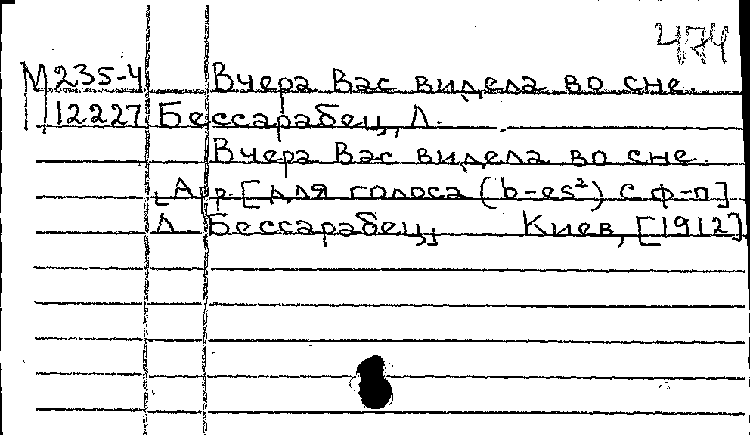 474
М 235-4 Вчера Вас видела во сне.
12227 Бессарабец, Л.
Вчера Вас видела во сне.
Арр. [для голоса (b-es²) с ф-п]
Л. Бессарабец, Киев, [1912]